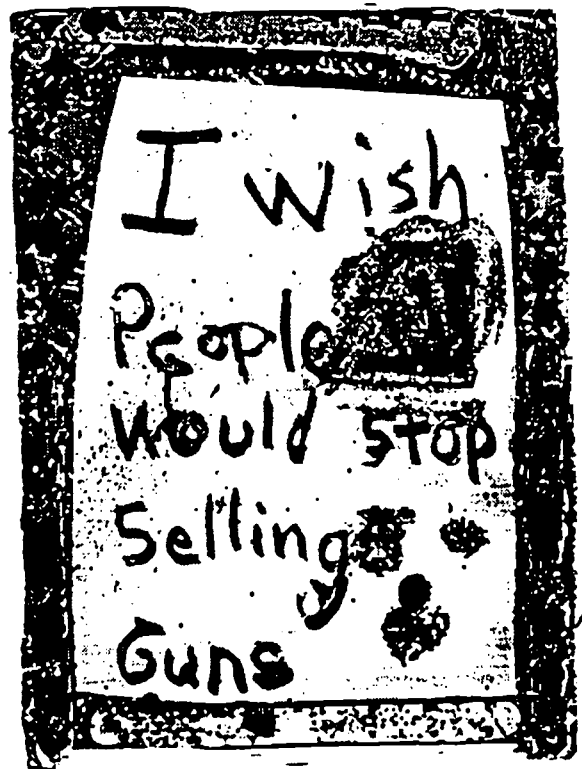 I wish
People
would stop
Selling
Guns